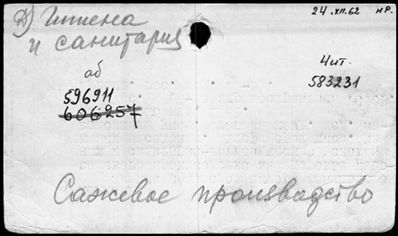 Д) Гигиена
и санитария
24.XII.62 нр.
об
596911
606257
Чит.
583231
Сажевое производство